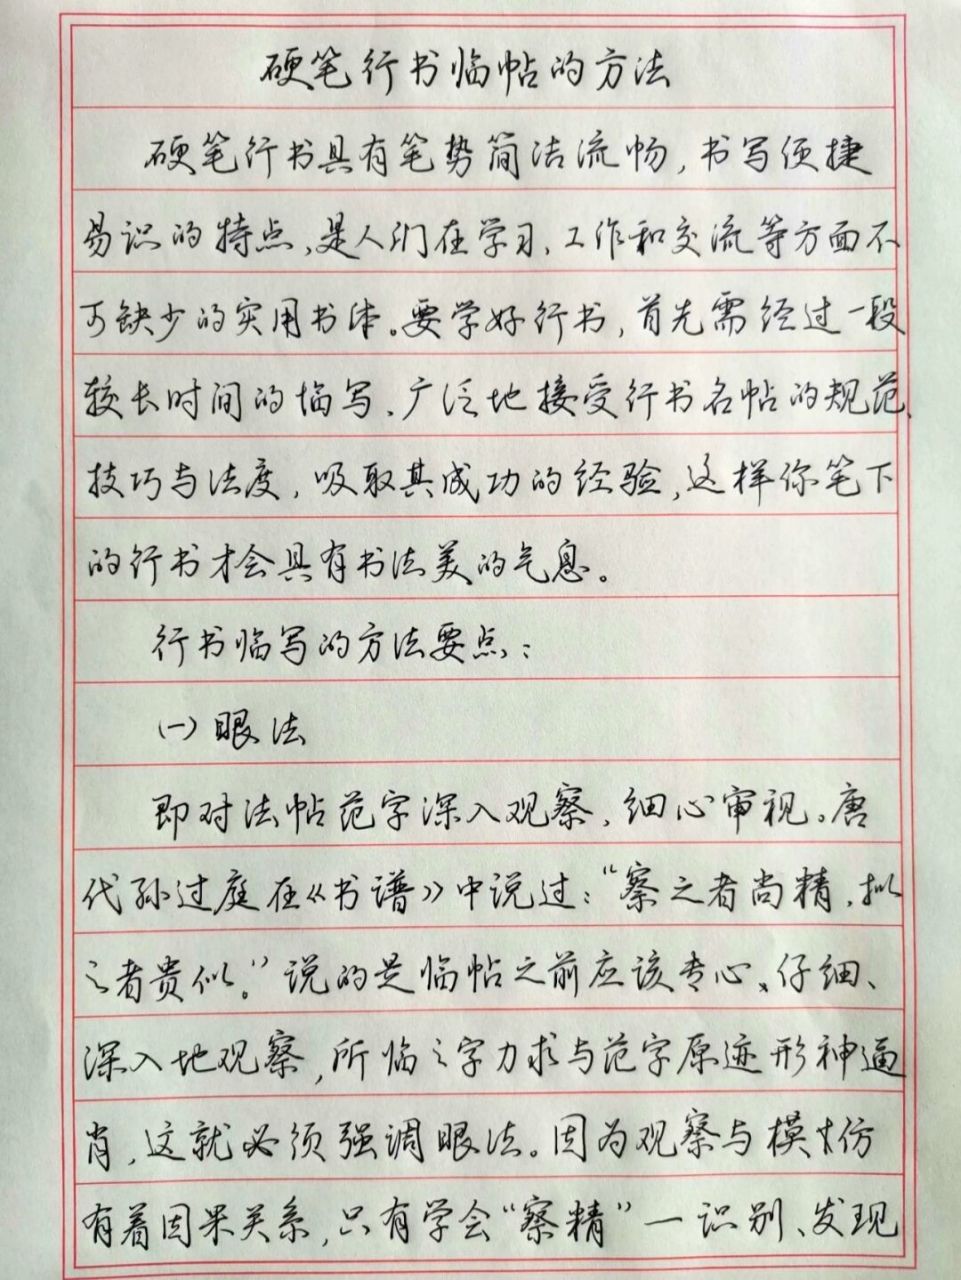 硬笔行书临帖的方法
硬笔行书具有笔势简洁流畅,书写便捷
易识的特点、是人们在学习、工作和交流等方面不
可缺少的实用书体。要学好行书,首先需经过一段
较长时间的临写、广泛地接受行书名帖的规范、
技巧与法度,吸取其成功的经验,这样你笔下
的行书才会具有书法美的气息。
行书临写的方法要点:
(一)眼法
即对法帖范字深入观察,细心审视。唐
代孙过庭在《书谱》中说过:“察之者尚精,拟
之者贵似。”说的是临帖之前应该专心、仔细、
深入地观察,所临之字力求与范字原迹形神逼
肖,这就必须强调眼法。因为观察与模仿
有着因果关系,只有学会“察精”一识别、发现